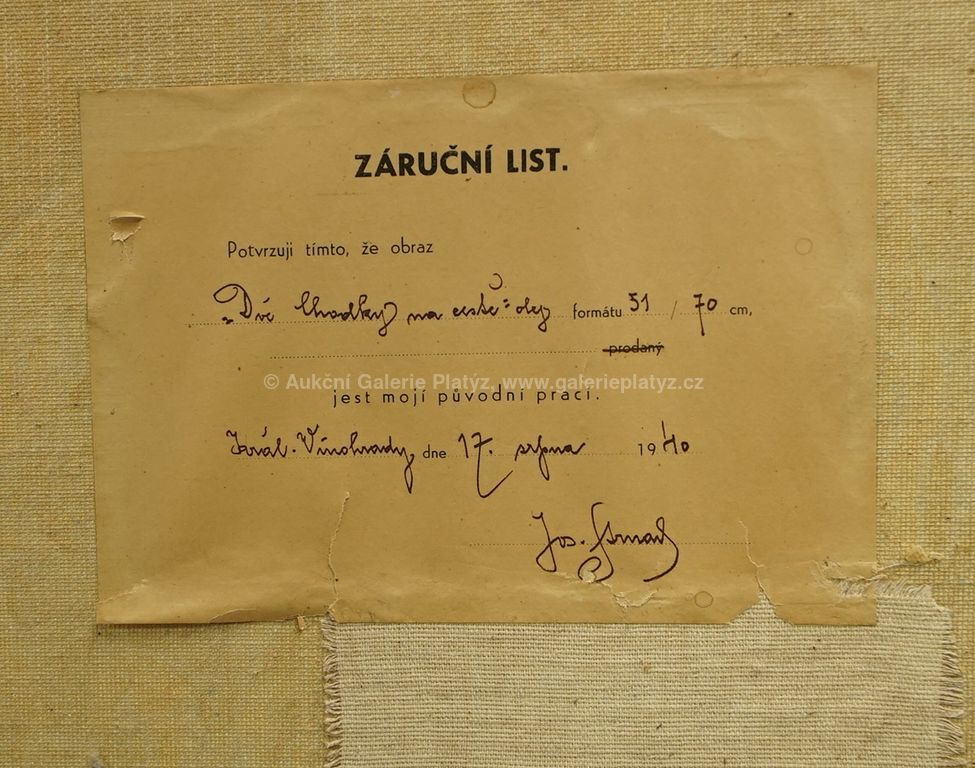 ZÁRUČNÍ LIST.
Potvrzuji tímto, že obraz
„Dvě Chodky na cestě" olej formátu 51 / 70 cm,
prodaný
© Aukční Galerie Platýz, www.galerieplatyz.cz
jest mojí původní prací.
Král. Vinohrady, dne 17. srpna 1940
Jos. Strnad